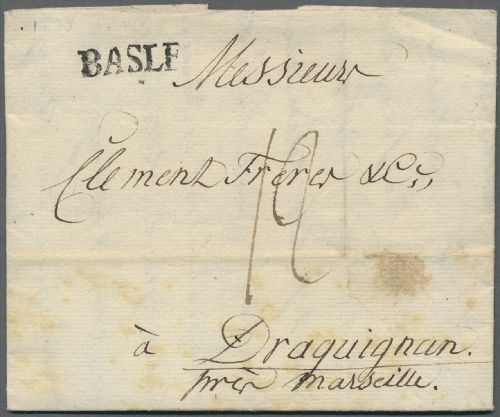 BASLE
Messieurs
Clement Freres & Cie,
12
à Draguignan.
près Marseille.